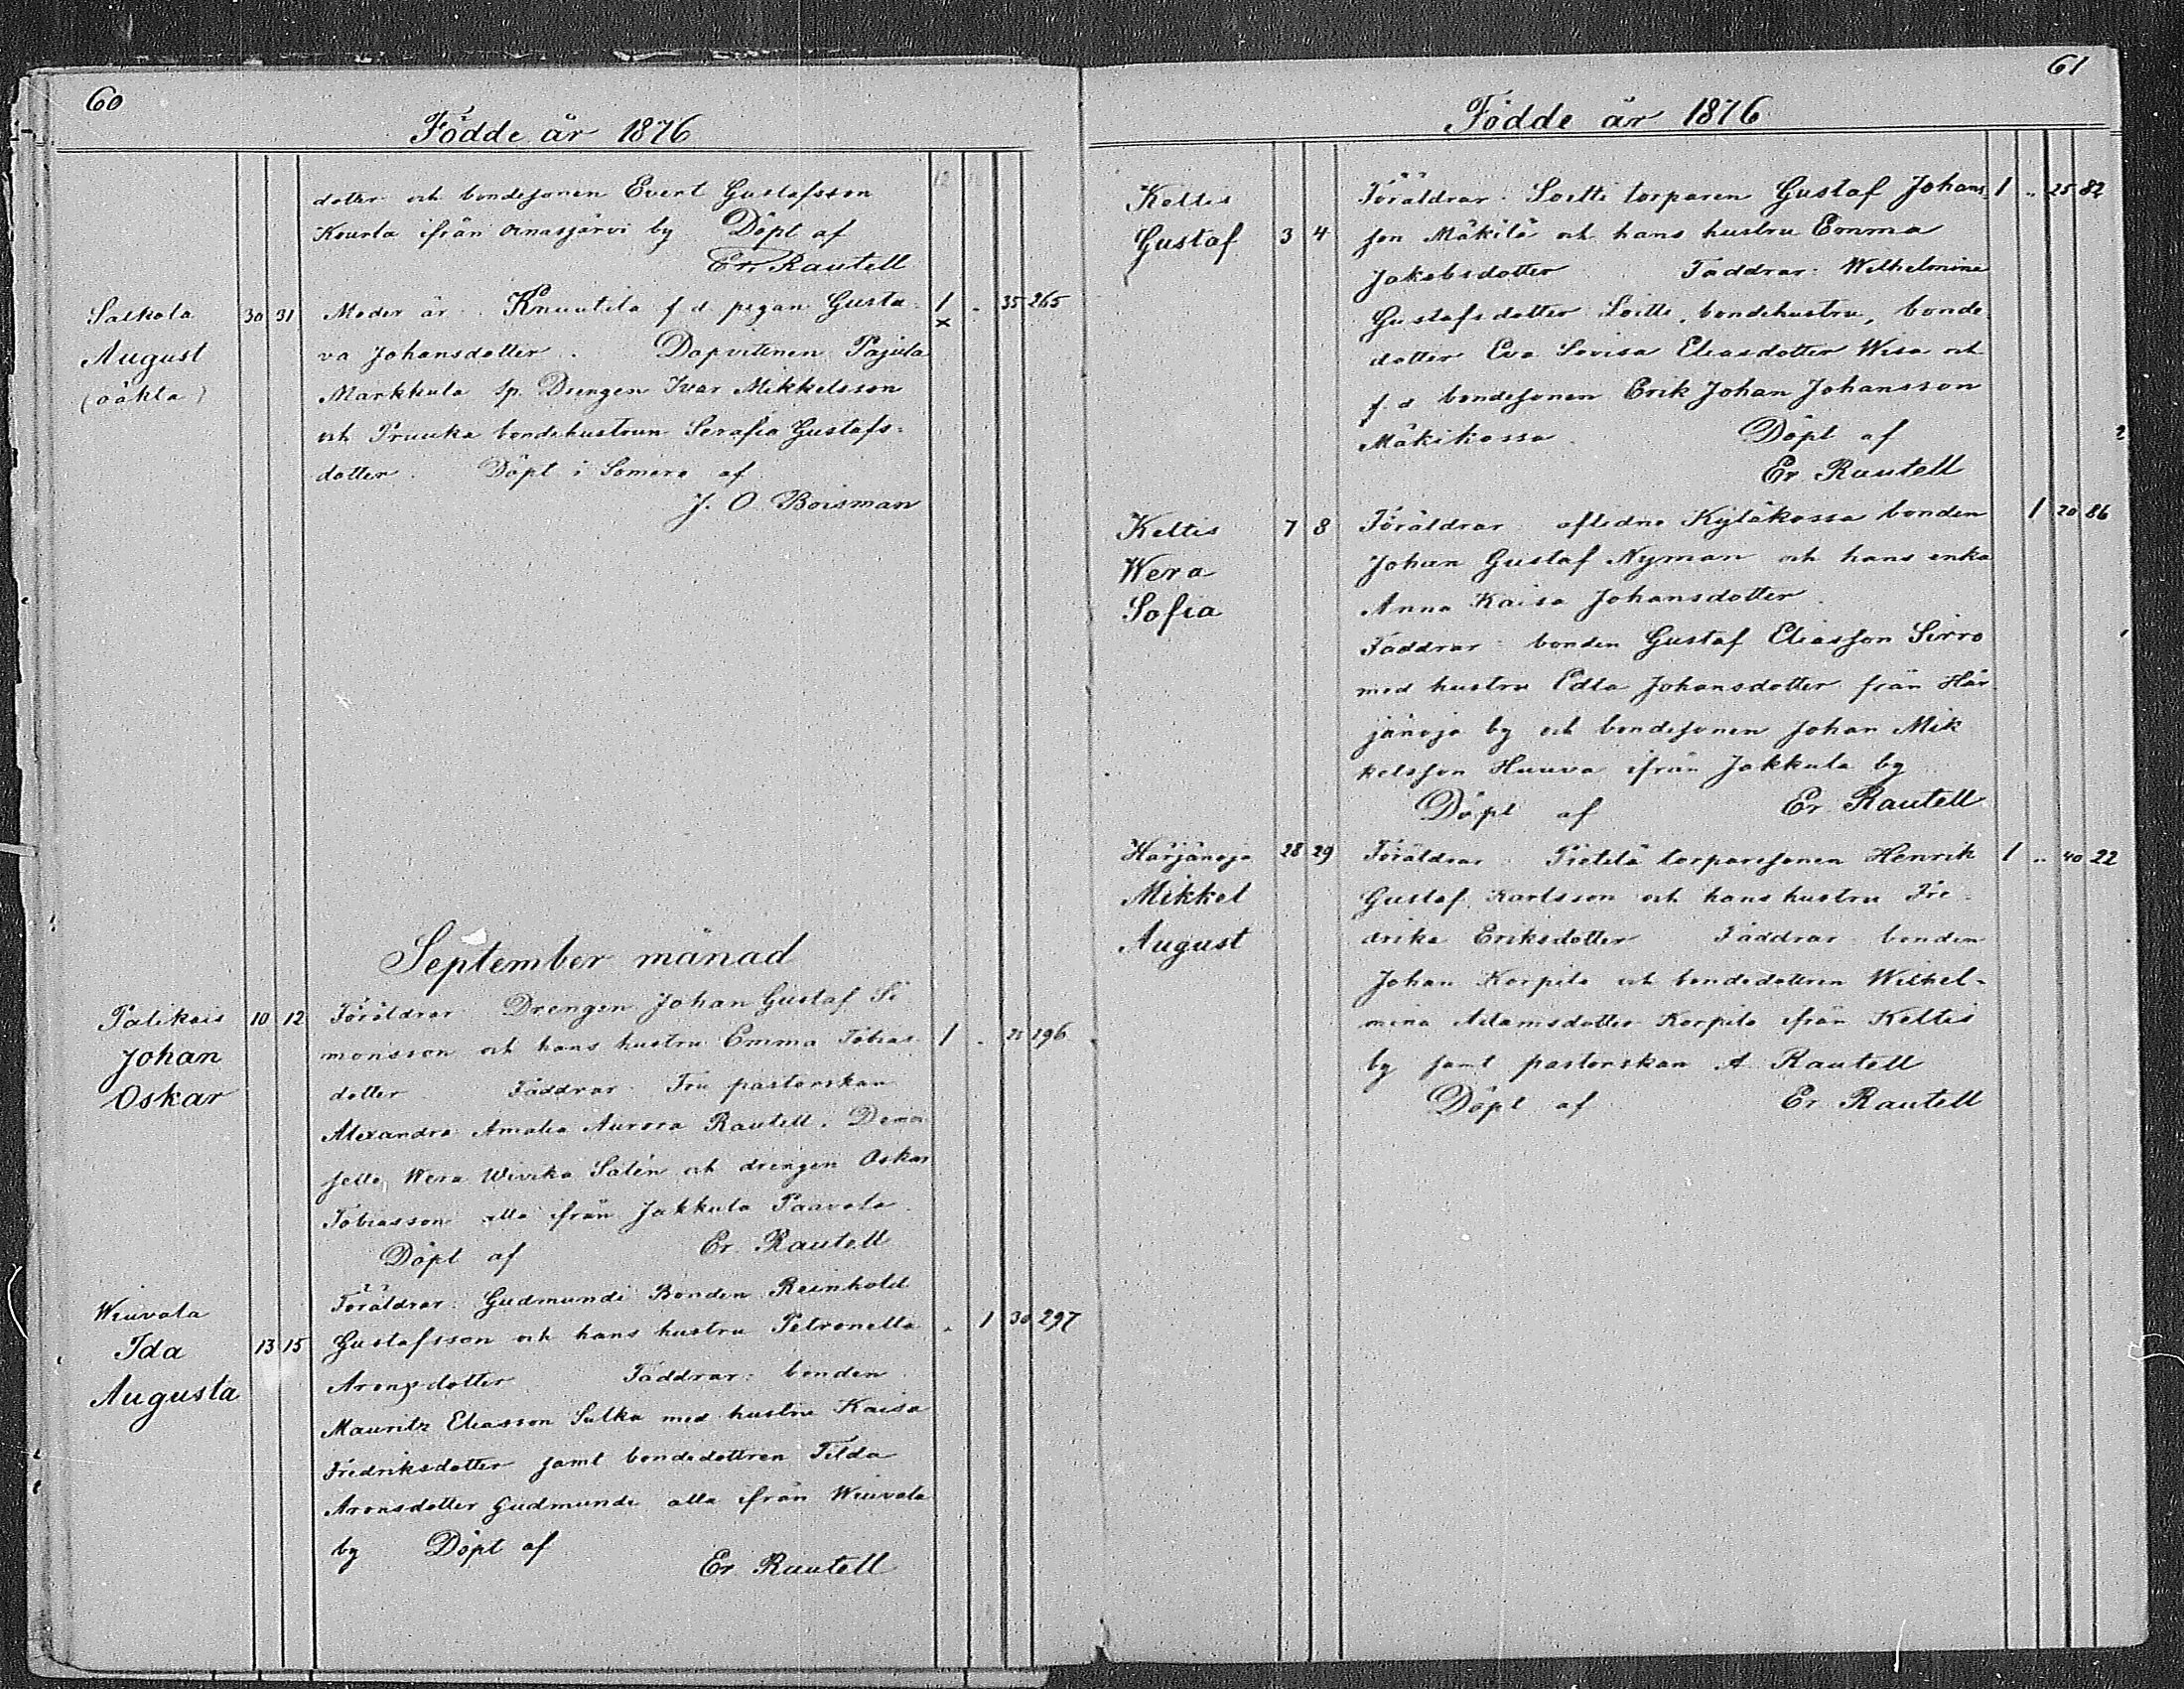 60
Födde år 1876
dotter och bondesonen Evert Gustafsson
Kourla ifrån Oinasjärvi by Döpt af
Er. Rautell
Salkola 30 31 Moder är Knuutila f d pigan Gusta- 1 35 265
August va Johansdotter. Dopvittnen Pajula ×
(oäkta) Markkula sp. Drengen Ivar Mikkelsson
och Pruuka bondehustrun Serafia Gustafs-
dotter. Döpt i Somero af
J. O. Boisman
September månad
Palikais 10 12 Föräldrar Drengen Johan Gustaf Si
Johan monsson och hans hustru Emma Tobias 1 196
Oskar dotter Faddrar Fru pastorskan
Alexandra Amalia Aurora Rautell, Demoi
selle, Wera Wivika Salén och drengen Oskar
Tobiasson alla ifrån Jakkula Paavola
Döpt af Er. Rautell
Wiuvala Föräldrar: Gudmundi Bonden Reinhold
Ida 13 15 Gustafsson och hans hustru Petronella 1 30 297
Augusta Aronsdotter Faddrar: bonden
Mauritz Eliasson Sulka med hustru Kaisa
Fredriksdotter samt bondedottren Tilda
Aronsdotter Gudmundi alla ifrån Wiuvala
by Döpt af
Er Rautell
61
Födde år 1876
Keltis Föräldrar Loitti torparen Gustaf Johans- 1 25 82
Gustaf 3 4 son Mäkilä och hans hustru Emma
Jakobsdotter Faddrar: Wilhelmina
Gustafsdotter Loitti, bondehustru, bonde-
dotter Eva Lovisa Eliasdotter Wisa och
f. d bondesonen Erik Johan Johansson
Mäkikossa. Döpt af
Er Rautell
Keltis 7 8 Föräldrar aflidne Kyläkossa bonden 1 20 86
Wera Johan Gustaf Nyman och hans enka
Sofia Anna Kaisa Johansdotter.
Faddrar: bonden Gustaf Eliasson Sirro
med hustru Edla Johansdotter från Här-
jänoja by och bondesonen Johan Mik
kelsson Huuva ifrån Jakkula by
Döpt af Er. Rautell
Härjänoja 28 29 Föräldrar Pietilä torparesonen Henrik 1 40 22
Mikkel Gustaf Karlsson och hans hustru Fre-
August drika Eriksdotter Faddrar bonden
Johan Korpila och bondedottren Wilhel-
mina Adamsdotter Korpila ifrån Keltis
by samt pastorskan A Rautell
Döpt af Er. Rautell